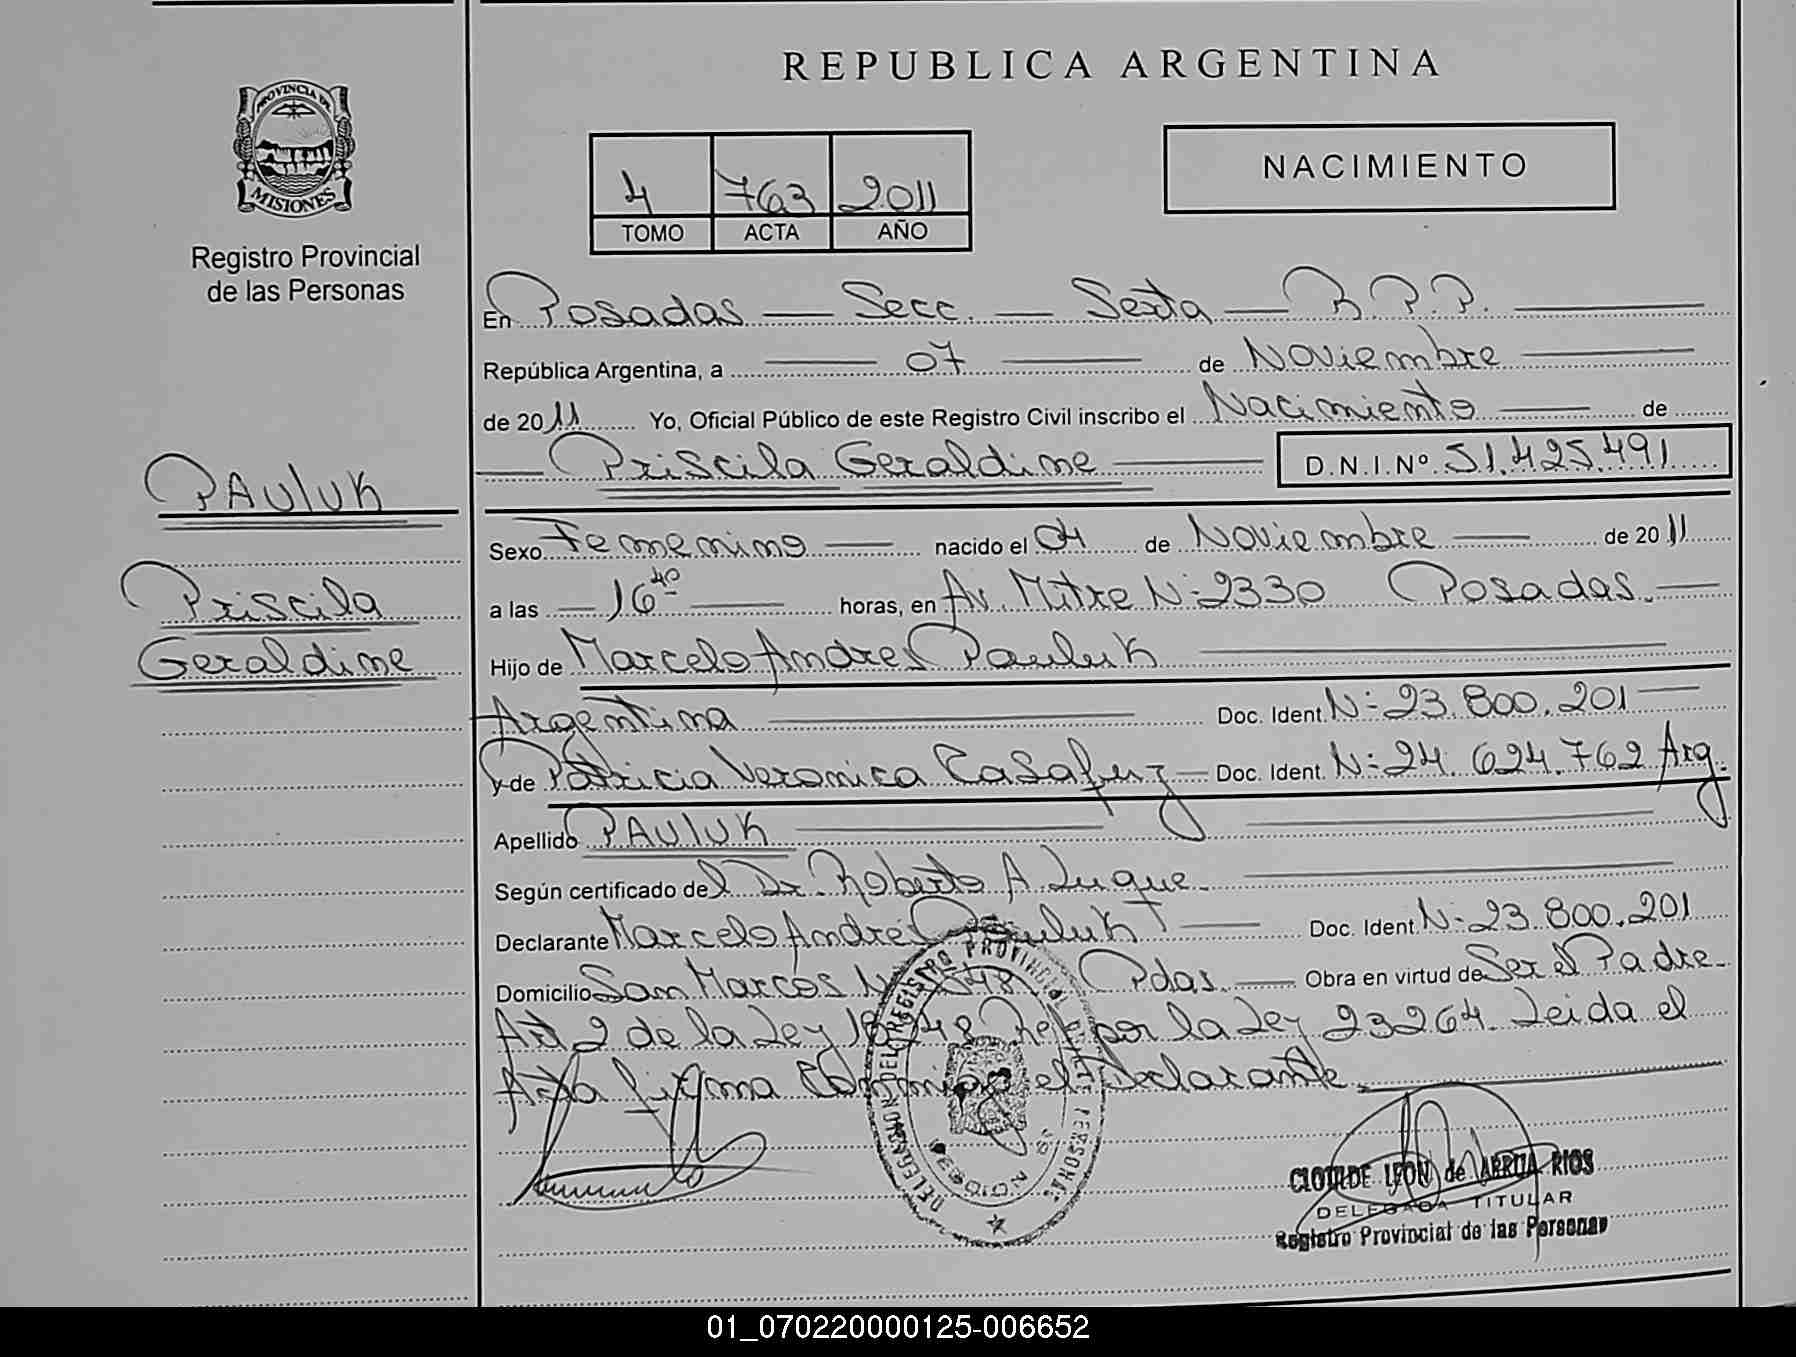 REPUBLICA ARGENTINA
PROVINCIA DE
MISIONES
Registro Provincial
de las Personas
4 763 2011
TOMO ACTA AÑO
NACIMIENTO
En Posadas — Secc. — Sexta — R.P.P.
República Argentina, a — 07 — de Noviembre
de 2011 Yo, Oficial Público de este Registro Civil inscribo el Nacimiento — de
Priscila Geraldine — D.N.I.Nº 51.425.491
PAULUK
Priscila
Geraldine
Sexo Femenino — nacido el 04 de Noviembre — de 2011
a las — 16 40 — horas, en Av. Mitre N: 2330 Posadas. —
Hijo de Marcelo Andres Pauluk
Argentina — Doc. Ident. N: 23.800.201 —
y de Patricia Veronica Casafuz — Doc. Ident. N: 24.624.762 Arg.
Apellido PAULUK
Según certificado del Dr. Roberto A. Luque.
Declarante Marcelo Andres Pauluk — Doc. Ident. N: 23.800.201
Domicilio San Marcos Pdas. — Obra en virtud de Ser el Padre.
Art 2 de la Ley por la Ley 23264. Leida el
Acta firma el Declarante.
DELEGACION DEL REGISTRO PROVINCIAL DE LAS PERSONAS
CLOTILDE LEON de ARRUA RIOS
DELEGADA TITULAR
Registro Provincial de las Personas
01_070220000125-006652